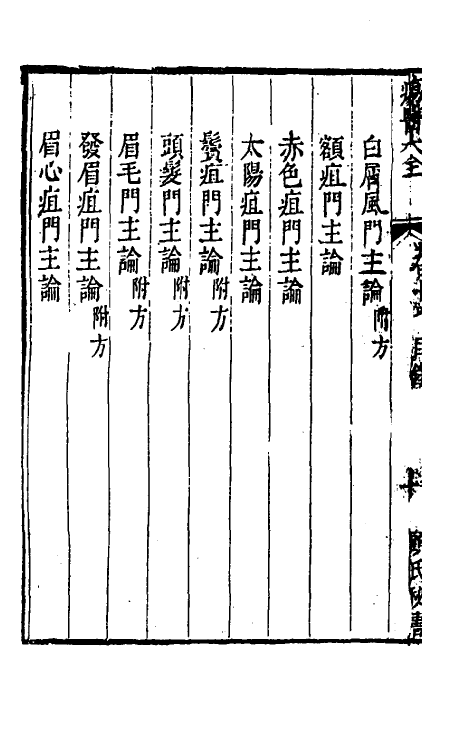 瘍醫大全
目錄
白屑風門主論附方
額疽門主論
赤色疽門主論
太陽疽門主論
鬢疽門主論附方
頭髮門主論附方
眉毛門主論附方
發眉疽門主論附方
眉心疽門主論